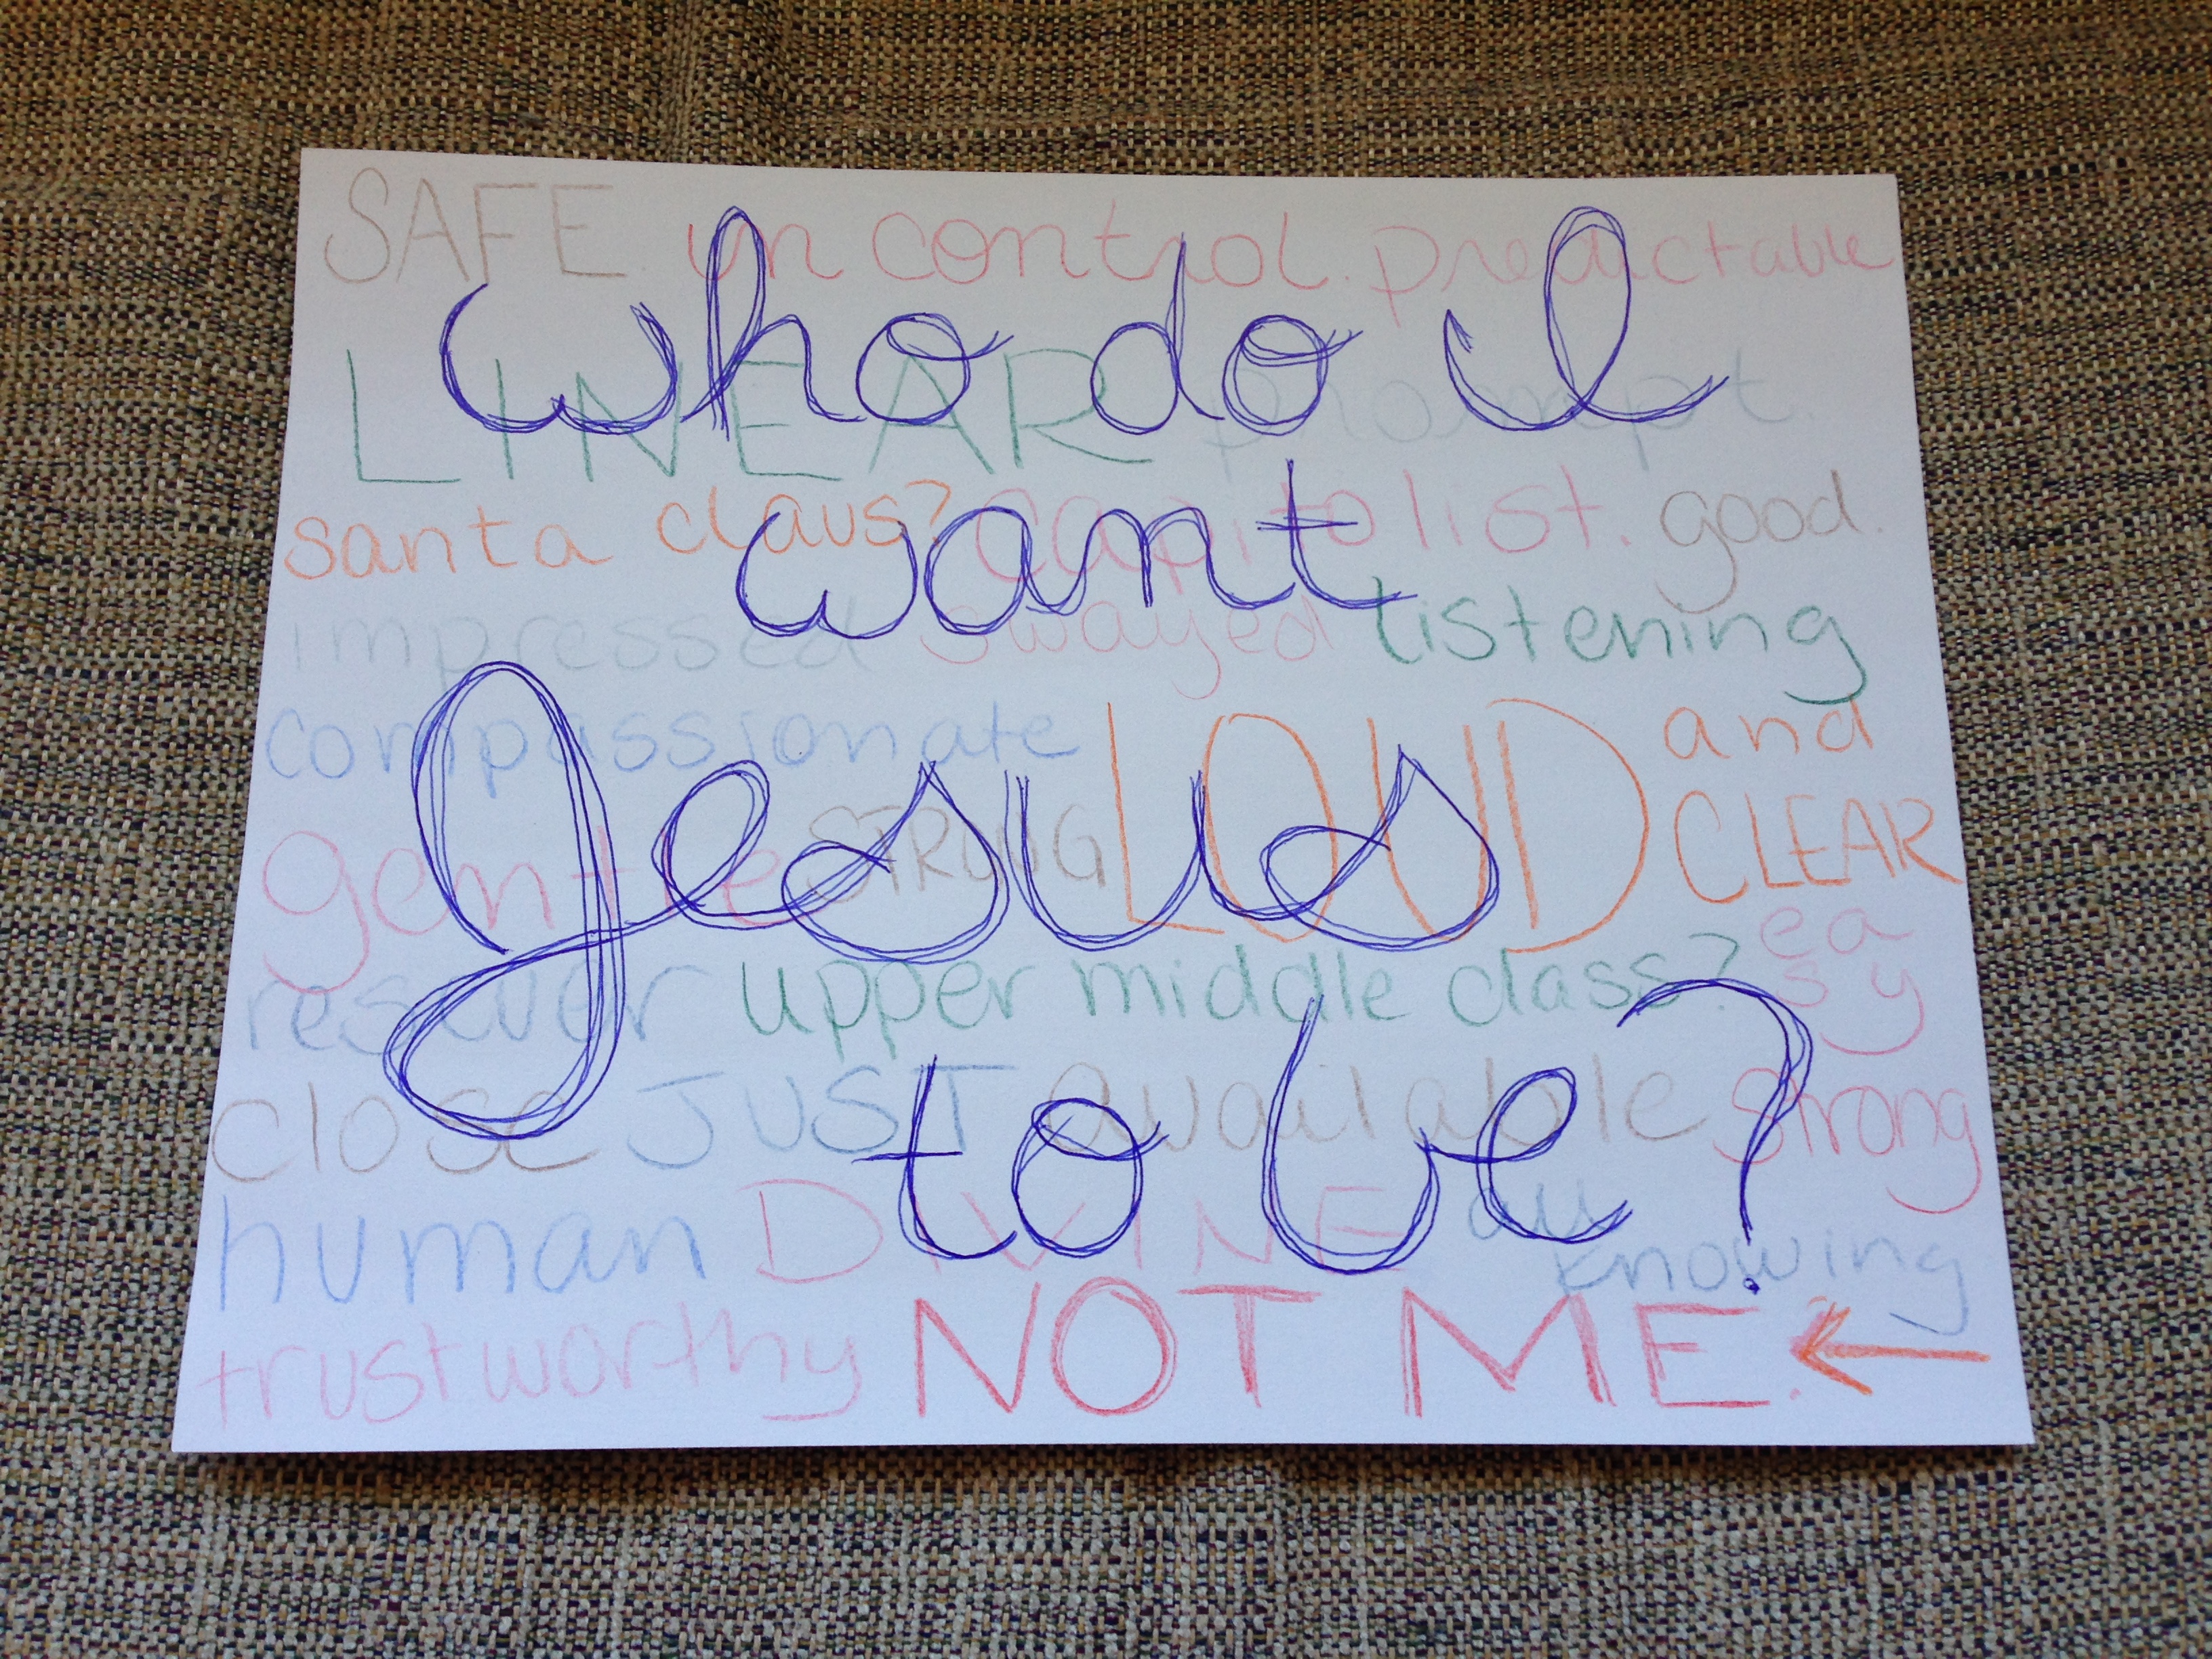 who do I
want
Jesus
to be?
SAFE. in control. predictable
LINEAR prompt.
santa claus? capitolist. good.
impressed swayed listening
compassionate LOUD and
gentle STRONG CLEAR
rescuer upper middle class? easy
close JUST available strong
human DIVINE all knowing
trustworthy NOT ME. ←